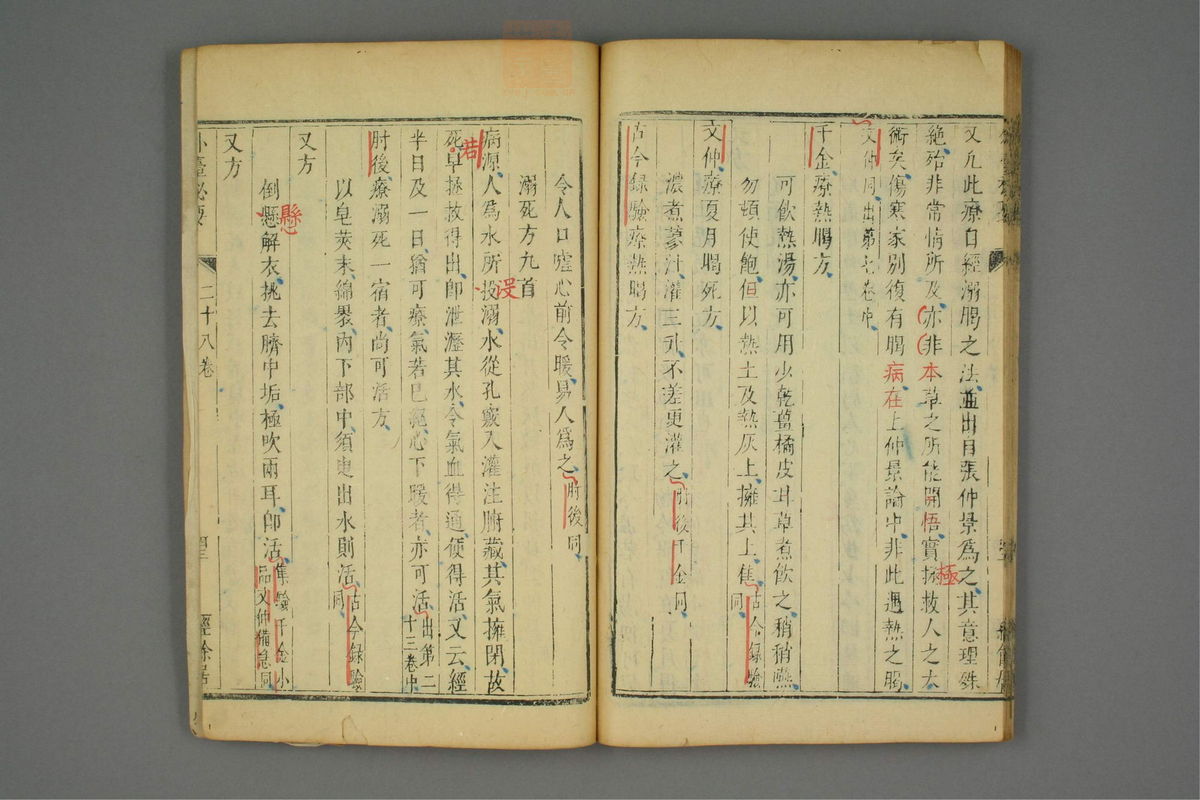 又凡此療自經溺暍之法並出自張仲景爲之其意理殊
絶殆非常情所及亦非本草之所能開悟實拯救人之大
極
術矣傷寒家別復有暍病在上仲景論中非此遇熱之暍
文仲同出第七卷中
千金療熱暍方
可飲熱湯亦可用少乾薑橘皮甘草煮飲之稍稍嚥
勿頓使飽但以熱土及熱灰土擁其上隹古今録驗
同
文仲療夏月暍死方
濃煮蓼汁灌三升不差更灌之肘後千金同
古今録驗療熱暍方
令人口噓心前令暖易人爲之肘後同
溺死方九首
病源人爲水所投溺水從孔竅入灌注腑藏其氣擁閉故
没
死早拯救得出即泄瀝其水令氣血得通便得活又云經
若
半日及一日猶可療氣若已絕心下暖者亦可活出第二
十三卷中
肘後療溺死一宿者尚可活方
以皂莢末綿裹内下部中須臾出水則活古今録驗
同
又方
倒懸解衣挑去臍中垢極吹兩耳即活集驗千金小
品文仲備急同
懸
又方
外臺祕要
二十八卷
四三
經餘居